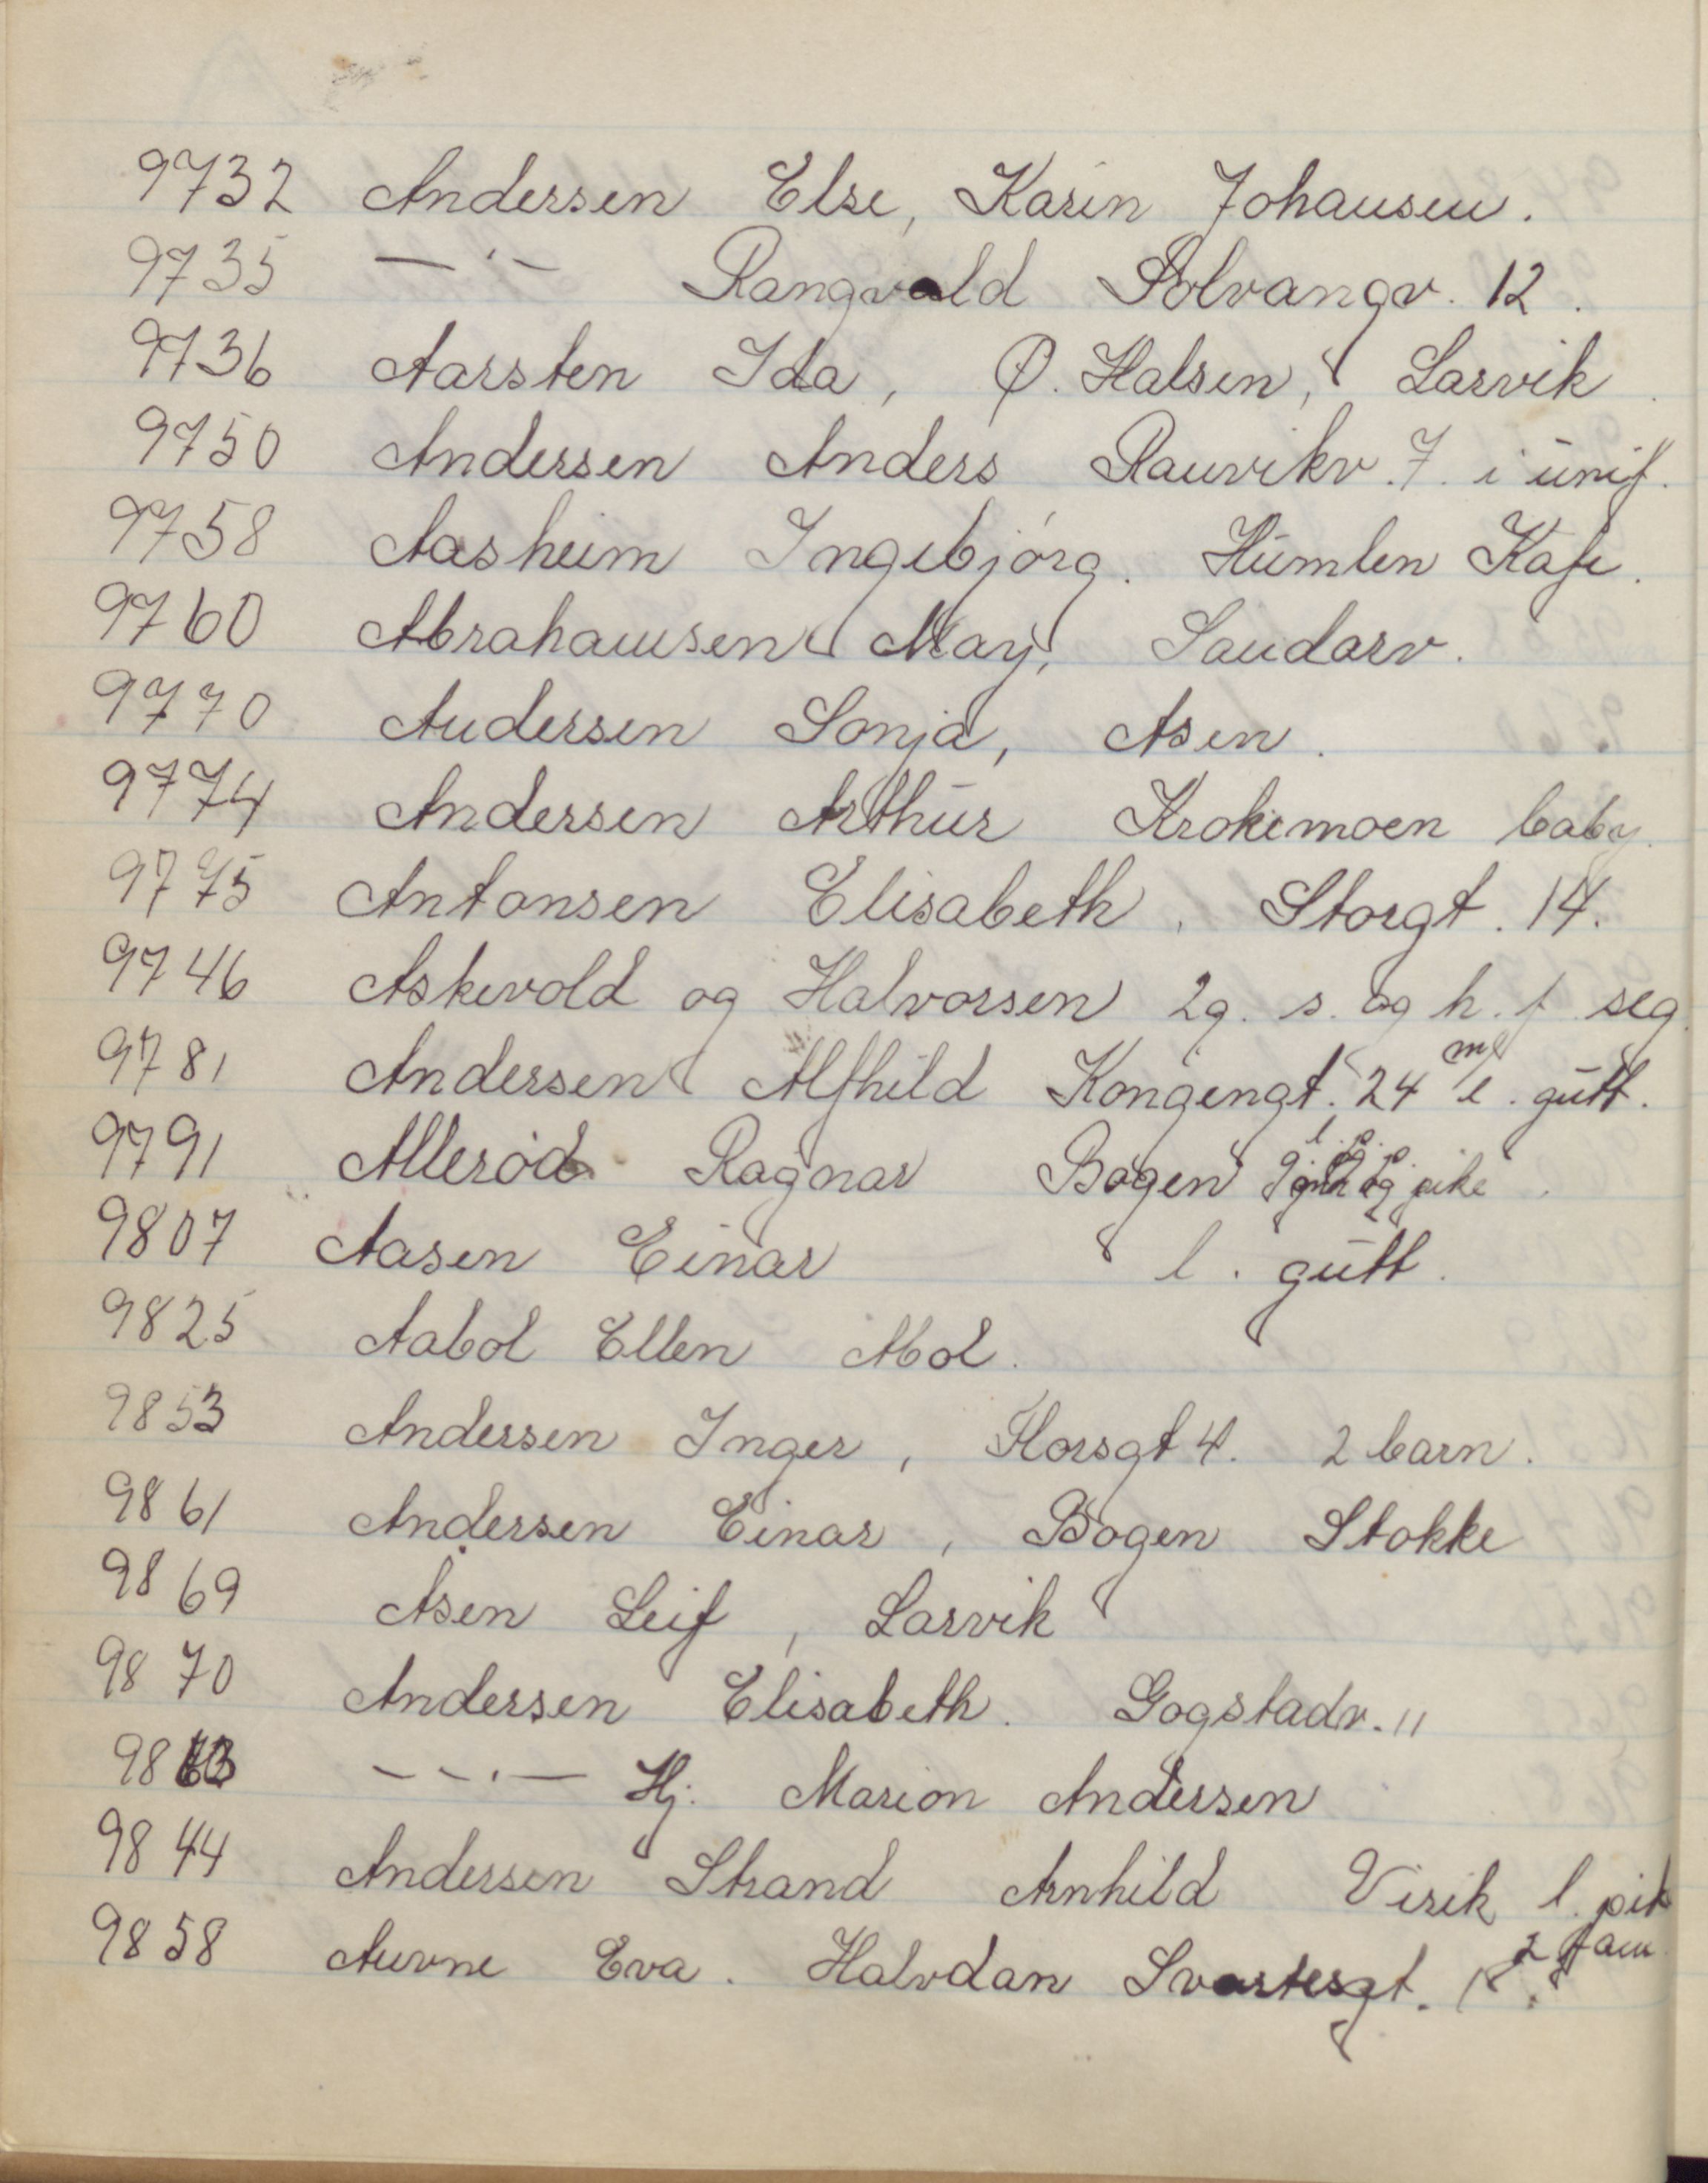 9732 Andersen Else, Karin Johansen.
9735 — · — Rangvald Solvangv. 12.
9736 Aarsten Ida, Ø. Halsen, Larvik.
9750 Andersen Anders Rauvikv. 7. i unif.
9758 Aasheim Ingebjórg. Humlen Kafe.
9760 Abrahamsen May, Sandarv.
9770 Andersen Sonja, Asen.
9774 Andersen Arthur Krokemoen baby.
9775 Antonsen Elisabeth, Storgt. 14.
9746 Askevold og Halvorsen 2g. s. og h. f. seg.
9781 Andersen Alfhild Kongengt. 24 m/ l. gutt.
9791 Alleród Ragnar Bogen og pike.
9807 Aasen Einar l. gutt.
9825 Aabol Ellen Abol.
9853 Andersen Inger, Horsgt 4. 2 barn.
9861 Andersen Einar, Bogen Stokke
9869 Åsen Leif, Larvik
9870 Andersen Elisabeth. Gogstadv. 11
98 — — · — Hj. Marion Andersen
9844 Andersen Strand Arnhild Virik l. pik
9858 Auvne Eva. Halvdan Svartesgt. 2 fam.